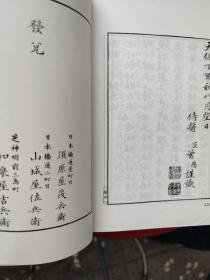 天保丁酉秋八月望日
侍醫 臣 菅 謹識
發兌
日本橋通壹町目
須原屋茂兵衛
日本橋通二町目
山城屋佐兵衛
芝神明前三島町
和泉屋吉兵衛